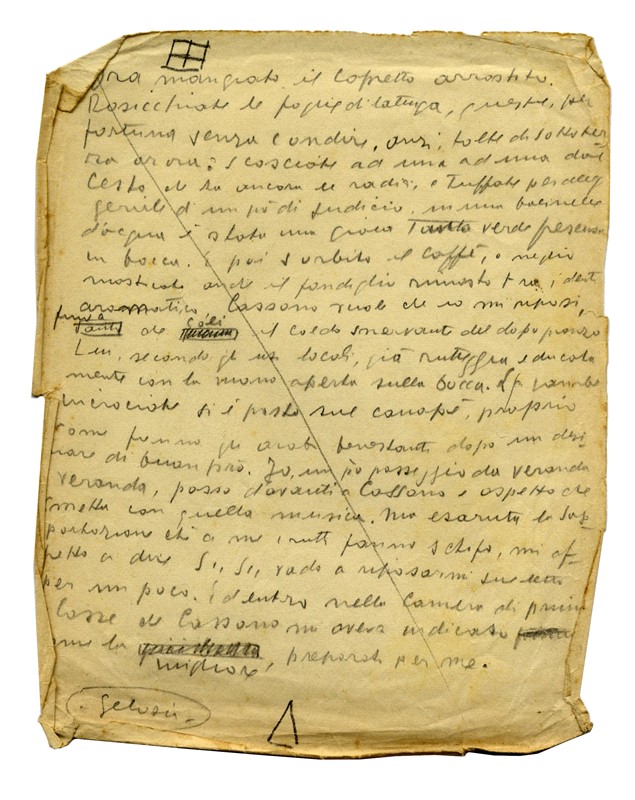 ora mangiato il capretto arrostito.
Rosicchiate le foglie di lattuga, queste, per
fortuna senza condire, anzi, tolte di sotto ter-
ra ora ora: scosciate ad una ad una dal
cesto che ha ancora le radici, e tuffate per
d'un pò di sudicio, in una bacinella
d'acqua è stata una gioia tanto verde frescura
in bocca. E poi sorbito il caffè, o meglio
masticato anche il fondiglio rimasto tra i denti
aromatico, Cassano vuole che io mi riposi,
che il caldo snervante del dopopranzo
Lui, secondo gli usi locali, già rutteggia educata
mente con la mano aperta sulla bocca. Le gambe
incrociate si è posto sul canapè, proprio
come fanno gli arabi benestanti dopo un desi-
nare di buon prò. Io, un pò passeggio da veranda
veranda, passo davanti a Cassano e aspetto che
smetta con quella musica. Ma esaurita la sop-
portazione chè a me i rutti fanno schifo, mi af-
fretto a dire Sì, sì, vado a riposarmi sul letto
per un poco. E dentro nella camera di prima
classe che Cassano mi aveva indicato
come la
migliore, preparata per me.
Gelosia